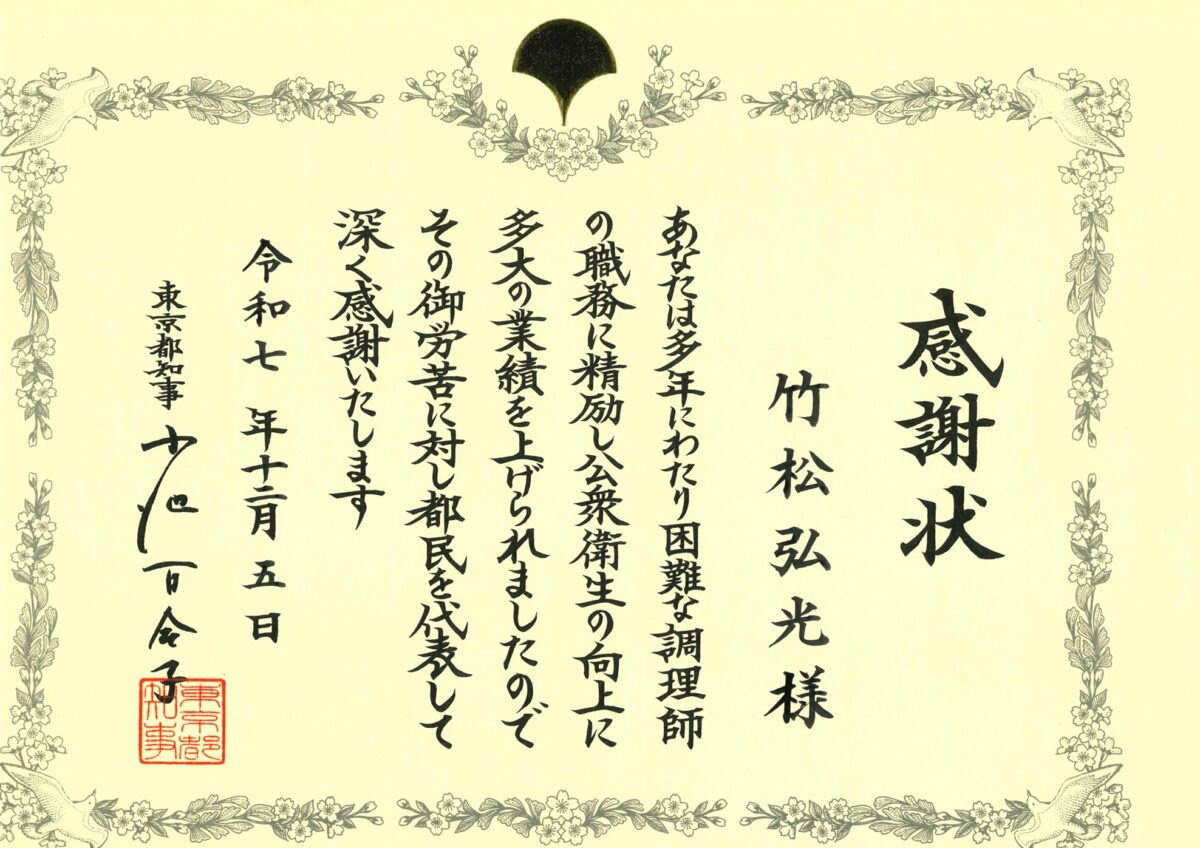 感謝状
竹松弘光様
あなたは多年にわたり困難な調理師
の職務に精励し公衆衛生の向上に
多大の業績を上げられましたので
その御労苦に対し都民を代表して
深く感謝いたします
令和七年十二月五日
東京都知事 小池百合子
東京都
知事